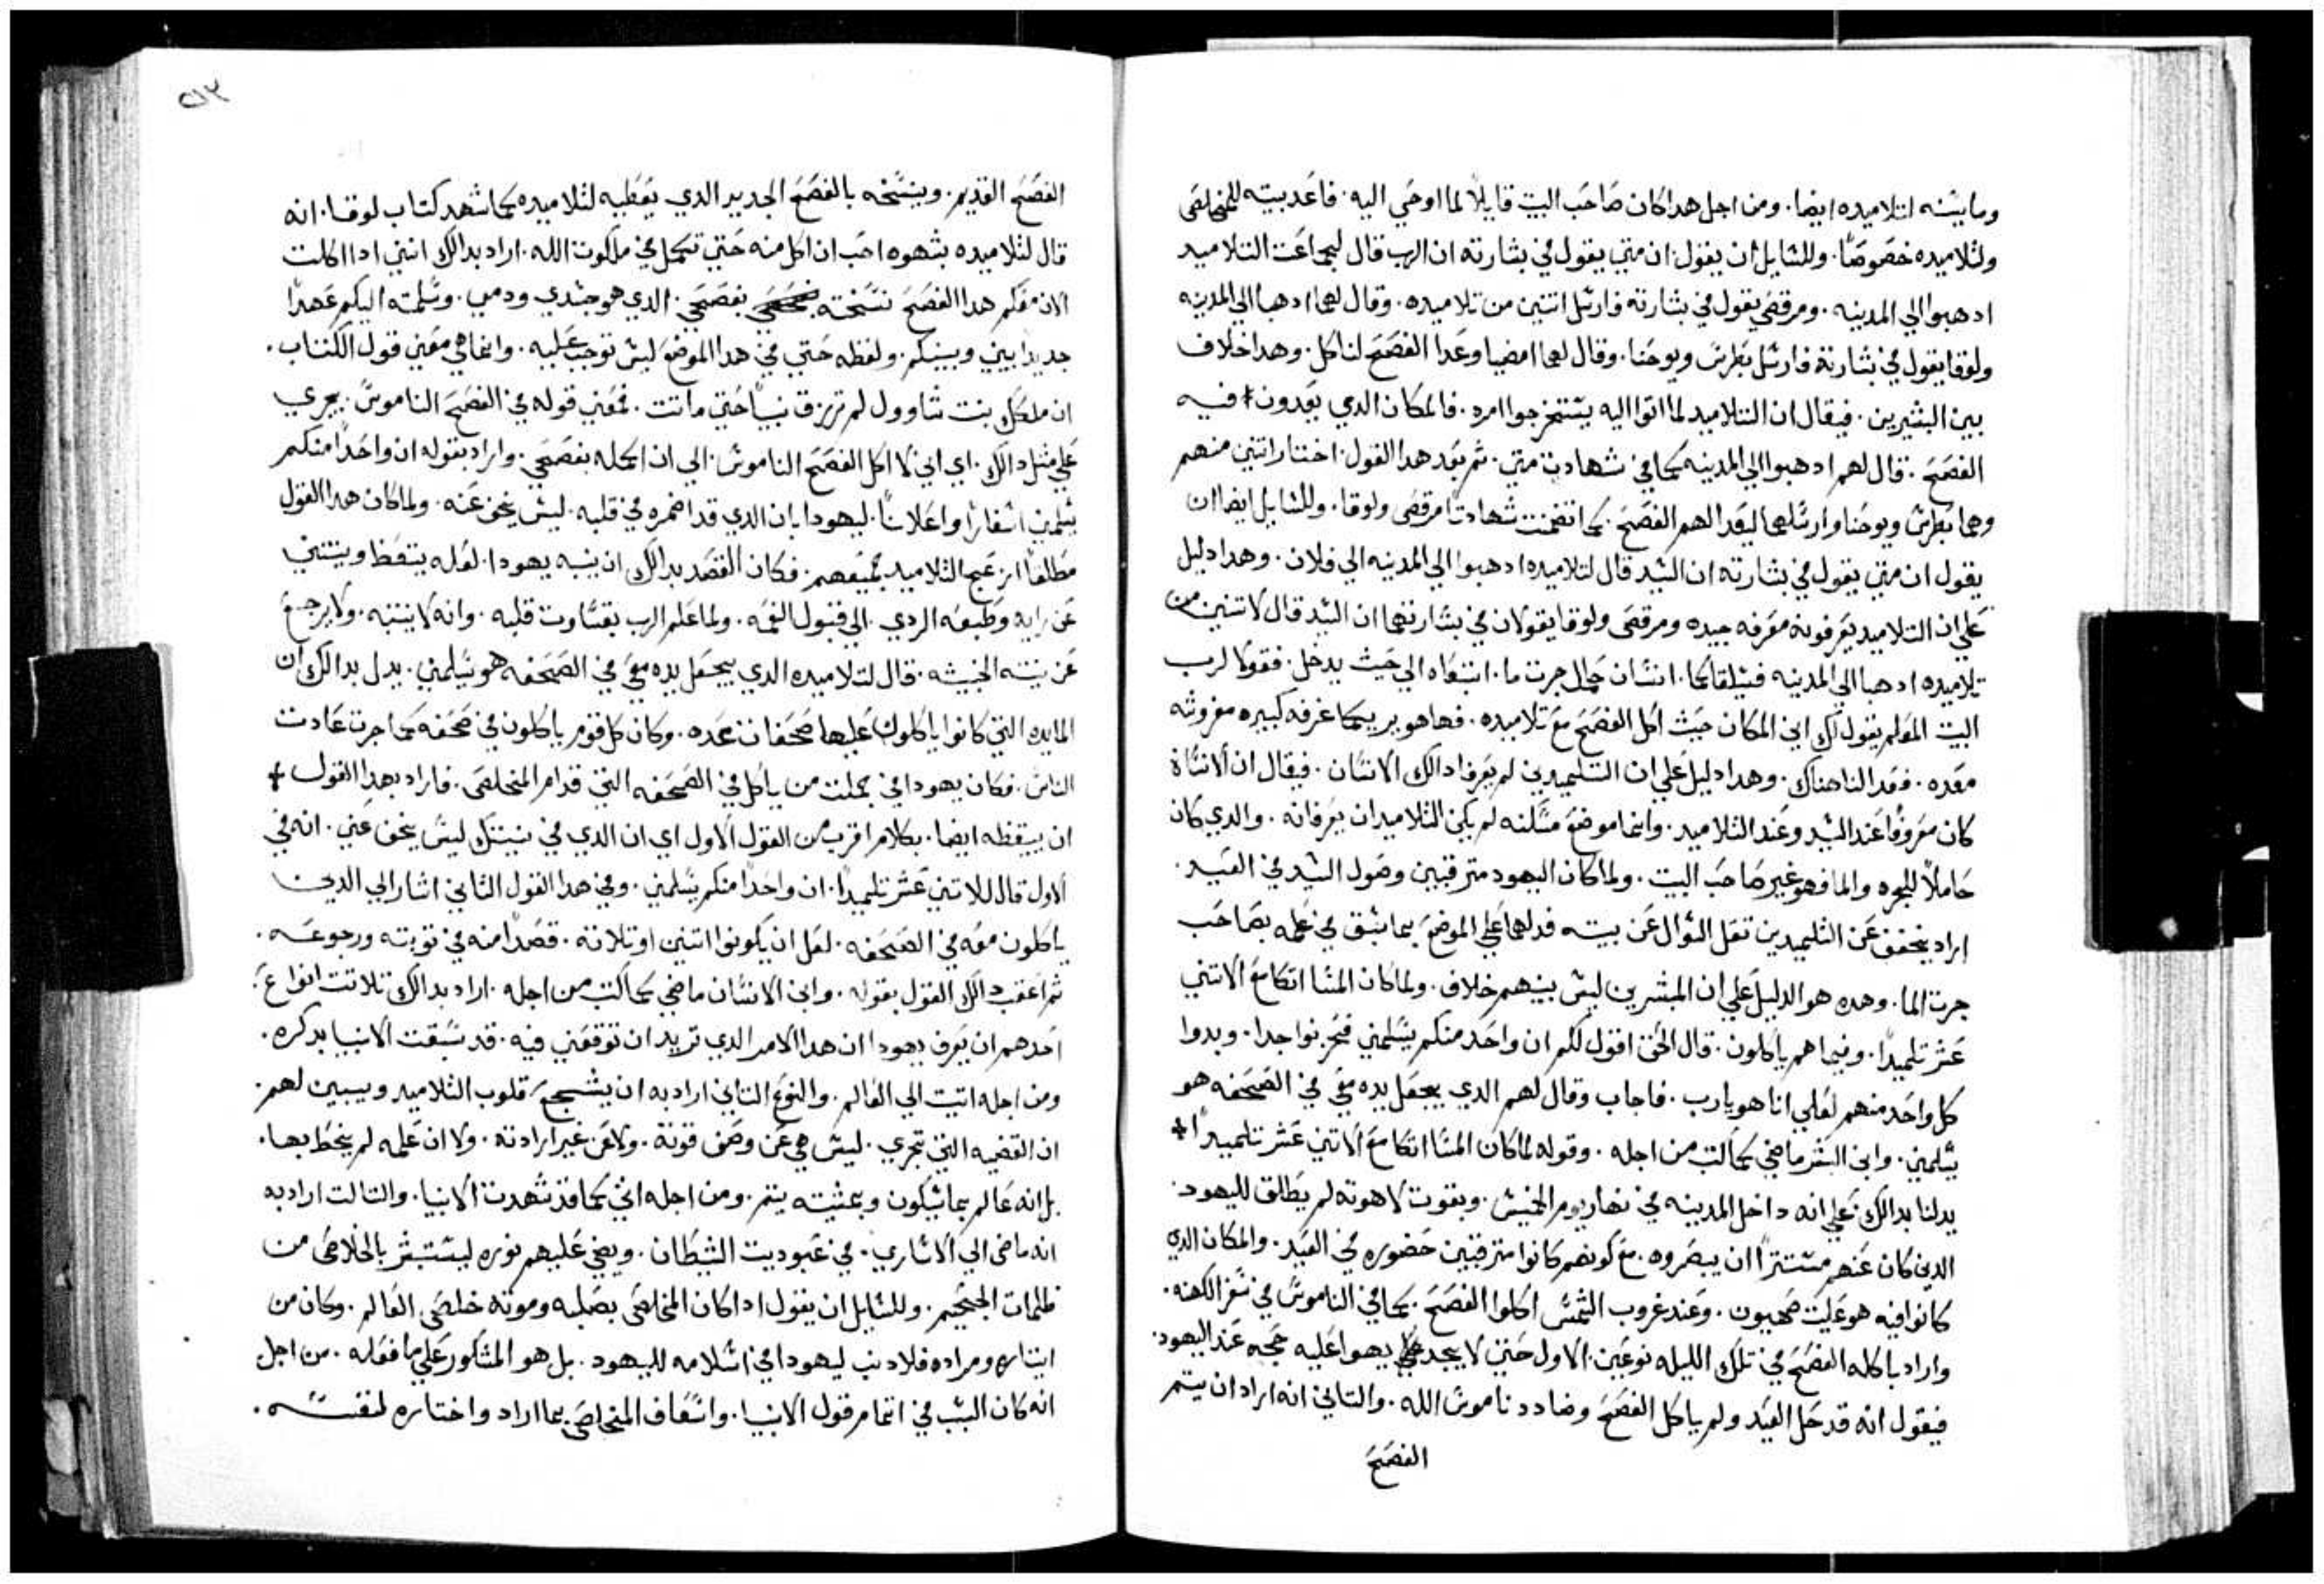 وما بيته لتلاميده ايضا. ومن اجل هدا كان صاحب البيت قايلاً لما اوحي اليه. فاعد بيته للمخلص
ولتلاميده خصوصًا. وللسايل ان يقول. ان متي يقول في بشارته ان الرب قال لجماعت التلاميد
ادهبوا الي المدينه. ومرقص يقول في بشارته فارسل اتنين من تلاميده. وقال لهما ادهبا الي المدينه
ولوقا يقول في بشارته فارسل بطرس ويوحنا. وقال لهما امضيا وعدا الفصح لناكل. وهدا خلاف
بين البشيرين. فيقال ان التلاميد لما اتوا اليه يستخرجوا امره. فالمكان الدي يعدون فيه
الفصح. قال لهم ادهبوا الي المدينه كما في شهادت متي. تم بعد هدا القول. اختار اتنين منهم
وهما بطرس ويوحنا وارسلهما ليعدا لهم الفصح. كما اتضمنت شهادت مرقص ولوقا. وللسايل ايضا ان
يقول ان متي يقول في بشارته ان السيد قال لتلاميده ادهبوا الي المدينه الي فلان. وهدا دليل
علي ان التلاميد يعرفونه معرفه جيده ومرقص ولوقا يقولان في بشارتهما ان السيد قال لاتنين من
تلاميده ادهبا الي المدينه فسيلقاكما. انسان حامل جرت ما. اتبعاه الي حيت يدخل. فقولا لرب
البيت المعلم يقول لك اين المكان حيت اكل الفصح مع تلاميده. فهاهو يريكما غرفه كبيره مفروشه
معده. فعدا لنا هناك. وهدا دليل علي ان التلميدين لم يعرفا دالك الانسان. فيقال ان الانسان
كان معروفًا عند السيد وعند التلاميد. وانما موضع مسكنه لم يكن التلاميدان يعرفانه. والدي كان
حاملاً للجره والما فهو غير صاحب البيت. ولما كان اليهود مترقبين وصول السيد في العيد.
اراد يخفف عن التلميدين تقل السوال عن بيته فدلهما علي الموضع بما سبق في علمه بصاحب
جرت الما. وهده هو الدليل علي ان المبشرين ليس بينهم خلاف. ولما كان المسا اتكا مع الاتني
عشر تلميدًا. وفيما هم ياكلون. قال الحق اقول لكم ان واحد منكم يسلمني فحزنوا جدا. وبدوا
كل واحد منهم لعلي انا هو يارب. فاجاب وقال لهم الدي يجعل يده معي في الصحفه هو
يسلمني. وابن البشر ماضي كما كتب من اجله. وقوله لما كان المسا اتكا مع الاتني عشر تلميدًا
يدلنا بدالك علي انه داخل المدينه في نهار يوم الخميس. وبقوت لاهوته لم يطلق لليهود.
الدي كان عنهم مستترًا ان يبصروه. مع كونهم كانوا مترقبين حضوره في العيد. والمكان الدي
كانوا فيه هو عليت صهيون. وعند غروب الشمس اكلوا الفصح. كما في الناموس في سفر الكهنه.
واراد باكله الفصح في تلك الليله نوعين. الاول حتي لا يجد يهوا عليه حجه عند اليهود.
فيقول انه قد حل العيد ولم ياكل الفصح وضادد ناموس الله. والتاني انه اراد ان يتم
الفصح
٥٣
الفصح القديم. وينسخه بالفصح الجديد الدي يعطيه لتلاميده كما شهد كتاب لوقا. انه
قال لتلاميده بشهوه احب ان اكل منه حتي تكمل في ملكوت الله. اراد بدالك انني ادا اكلت
الان معكم هدا الفصح نسخته بفصحي. الدي هو جسدي ودمي. وسلمته اليكم عهدًا
جديدا بيني وبينكم. ولفظه حتي في هدا الموضع ليس توجب عليه. وانما هي معني قول الكتاب.
ان ملكل بنت شاوول لم ترزق نسيا حتي ماتت. فمعني قوله في الفصح الناموس. يجري
علي متل دالك. اي اني لا اكل الفصح الناموس. الي ان اكمله بفصحي. واراد بقوله ان واحدًا منكم
يسلمني اشعارًا واعلانًا. ليهودا بان الدي قد اضمره في قلبه. ليس يخفي عنه. ولما كان هدا القول
مطلقًا ازعج التلاميد جميعهم. فكان القصد بدالك ان ينبه يهودا. لعله يتعظ وينتني
عن رايه وطبعه الردي. الي قبول النعمه. ولما علم الرب بقساوت قلبه. وانه لا ينتبه. ولا يرجع
عن نيته الخبيته. قال لتلاميده الدي يجعل يده معي في الصحفه هو يسلمني. يدل بدالك ان
المايده التي كانوا ياكلون عليها صحفات عده. وكان كل قوم ياكلون في صحفه كما جرت عادت
الناس. فكان يهودا في جملت من ياكل في الصحفه التي قدام المخلص. فاراد بهدا القول
ان ييقظه ايضا. بكلام اقرب من القول الاول اي ان الدي في نيتك ليس يخفي عني. انه في
الاول قال للاتني عشر تلميدًا. ان واحدًا منكم يسلمني. وفي هدا القول التاني اشار الي الدين
ياكلون معه في الصحفه. لعل ان يكونوا اتنين او تلاته. قصدًا منه في توبته ورجوعه.
تم اعقب دالك القول بقوله. وابن الانسان ماضي كما كتب من اجله. اراد بدالك تلاتت انواع.
احدهم ان يعرف يهودا ان هدا الامر الدي تريد ان توقعني فيه. قد سبقت الانبيا بدكره.
ومن اجله اتيت الي العالم. والنوع التاني اراد به ان يشجع قلوب التلاميد ويبين لهم.
ان القضيه التي تجري. ليس هي عن وضي قوته. ولا عن غير ارادته. ولا ان علمه لم يحط بها.
بل انه عالم بما سيكون وبمشيته يتم. ومن اجله اتي كما قد شهدت الانبيا. والتالت اراد به
انه ماضي الي الاساري. في عبوديت الشيطان. ويضي عليهم نوره ليستبشر بالخلاص من
ظلمات الجحيم. وللسايل ان يقول ادا كان المخلص بصلبه وموته خلص العالم. وكان من
ايتاره ومراده فلا دنب ليهودا في اسلامه لليهود. بل هو المشكور علي ما فعله. من اجل
انه كان السبب في اتمام قول الانبيا. واسعاف المخلص بما اراد واختاره لنفسه.